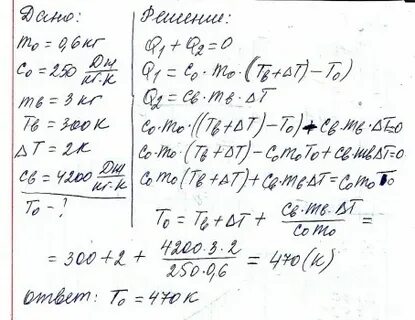 Дано:
m₀ = 0,6 кг
c₀ = 250 Дж/кг·К
mв = 3 кг
Tв = 300 К
ΔT = 2 К
cв = 4200 Дж/кг·К
T₀ - ?
Решение:
Q₁ + Q₂ = 0
Q₁ = c₀ · m₀ · (Tв + ΔT) - T₀)
Q₂ = cв · mв · ΔT
c₀ · m₀ · ((Tв + ΔT) - T₀) + cв · mв · ΔT = 0
c₀ · m₀ · (Tв + ΔT) - c₀m₀T₀ + cв · mвΔT = 0
c₀m₀(Tв + ΔT) + cв · mвΔT = c₀m₀T₀
T₀ = Tв + ΔT + cв · mв · ΔT/c₀m₀ =
= 300 + 2 + 4200 · 3 · 2/250 · 0,6 = 470 (К)
Ответ: T₀ = 470 К